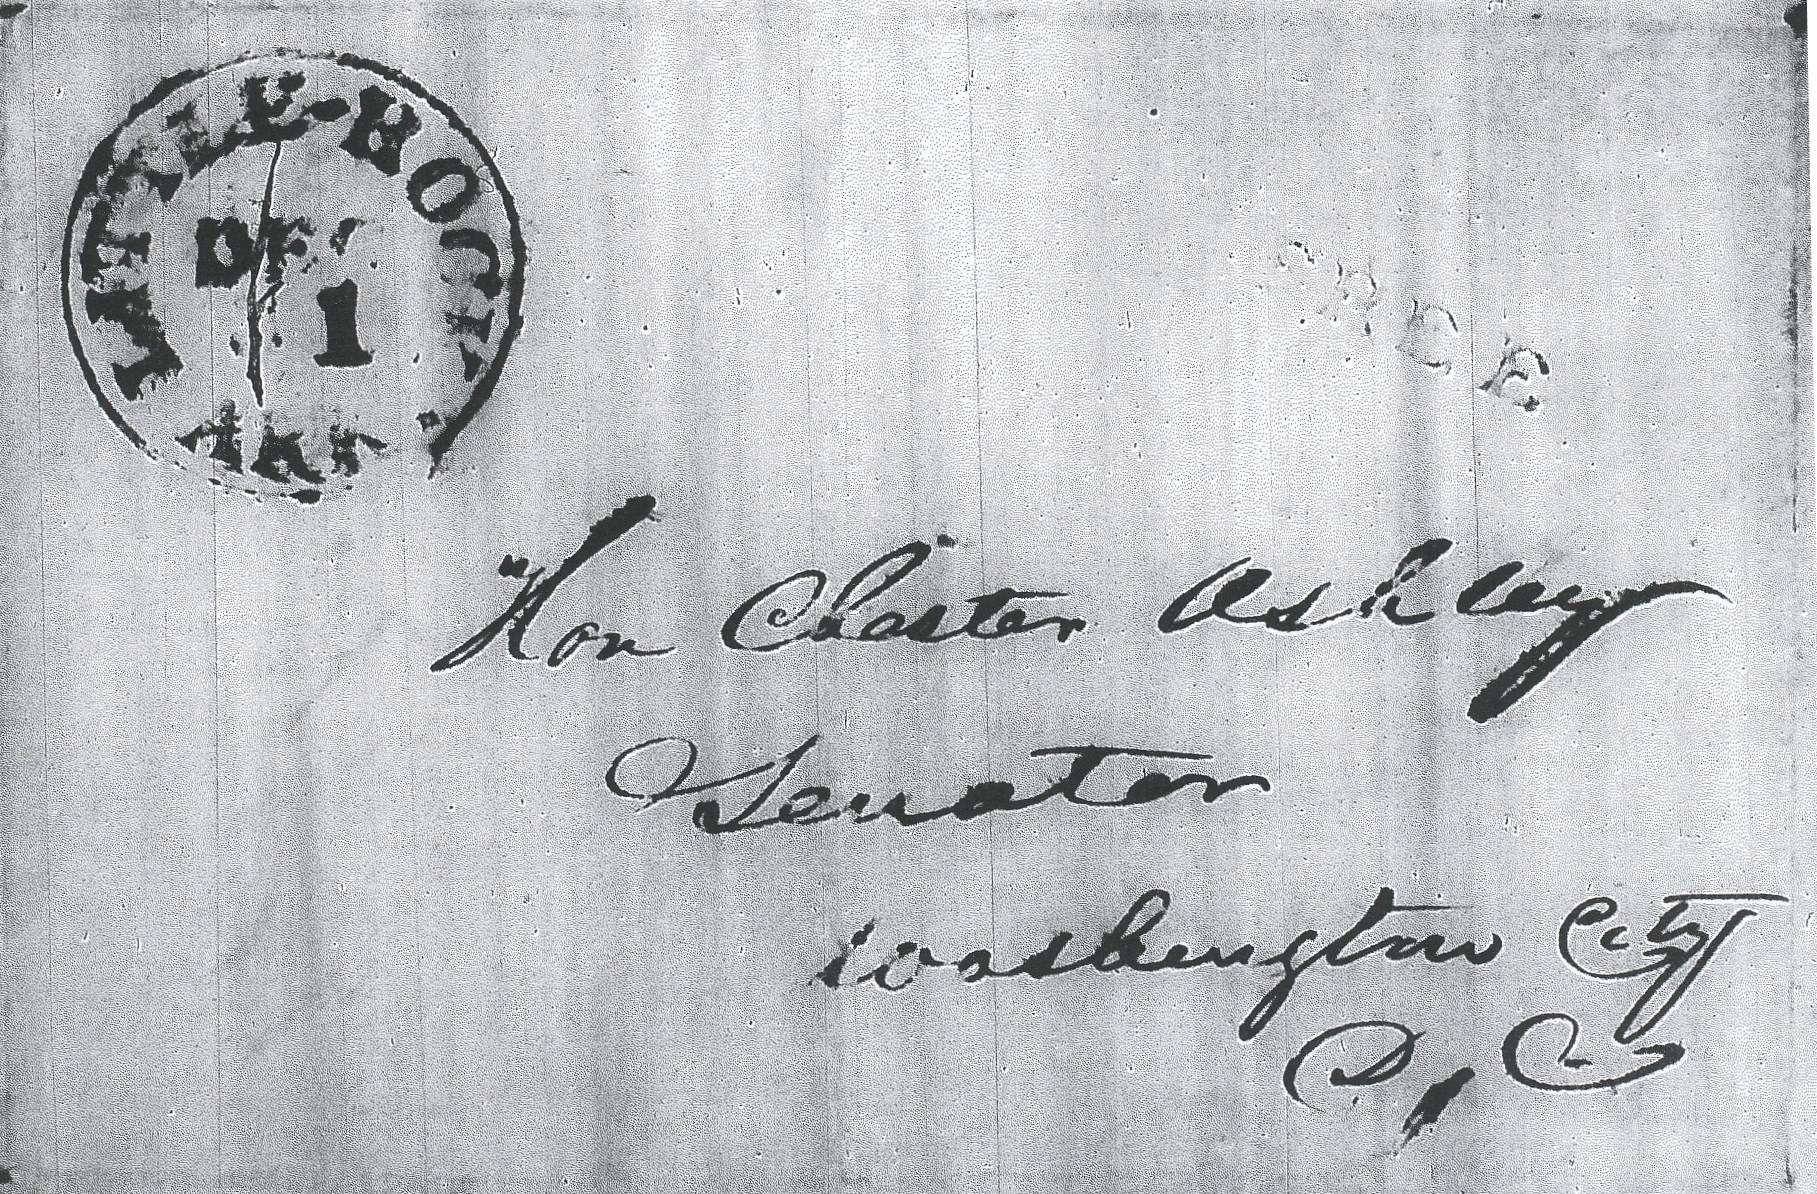 LITTLE-ROCK
DEC
1
ARK
Hon Chester Ashley
Senator
Washington City
D, C